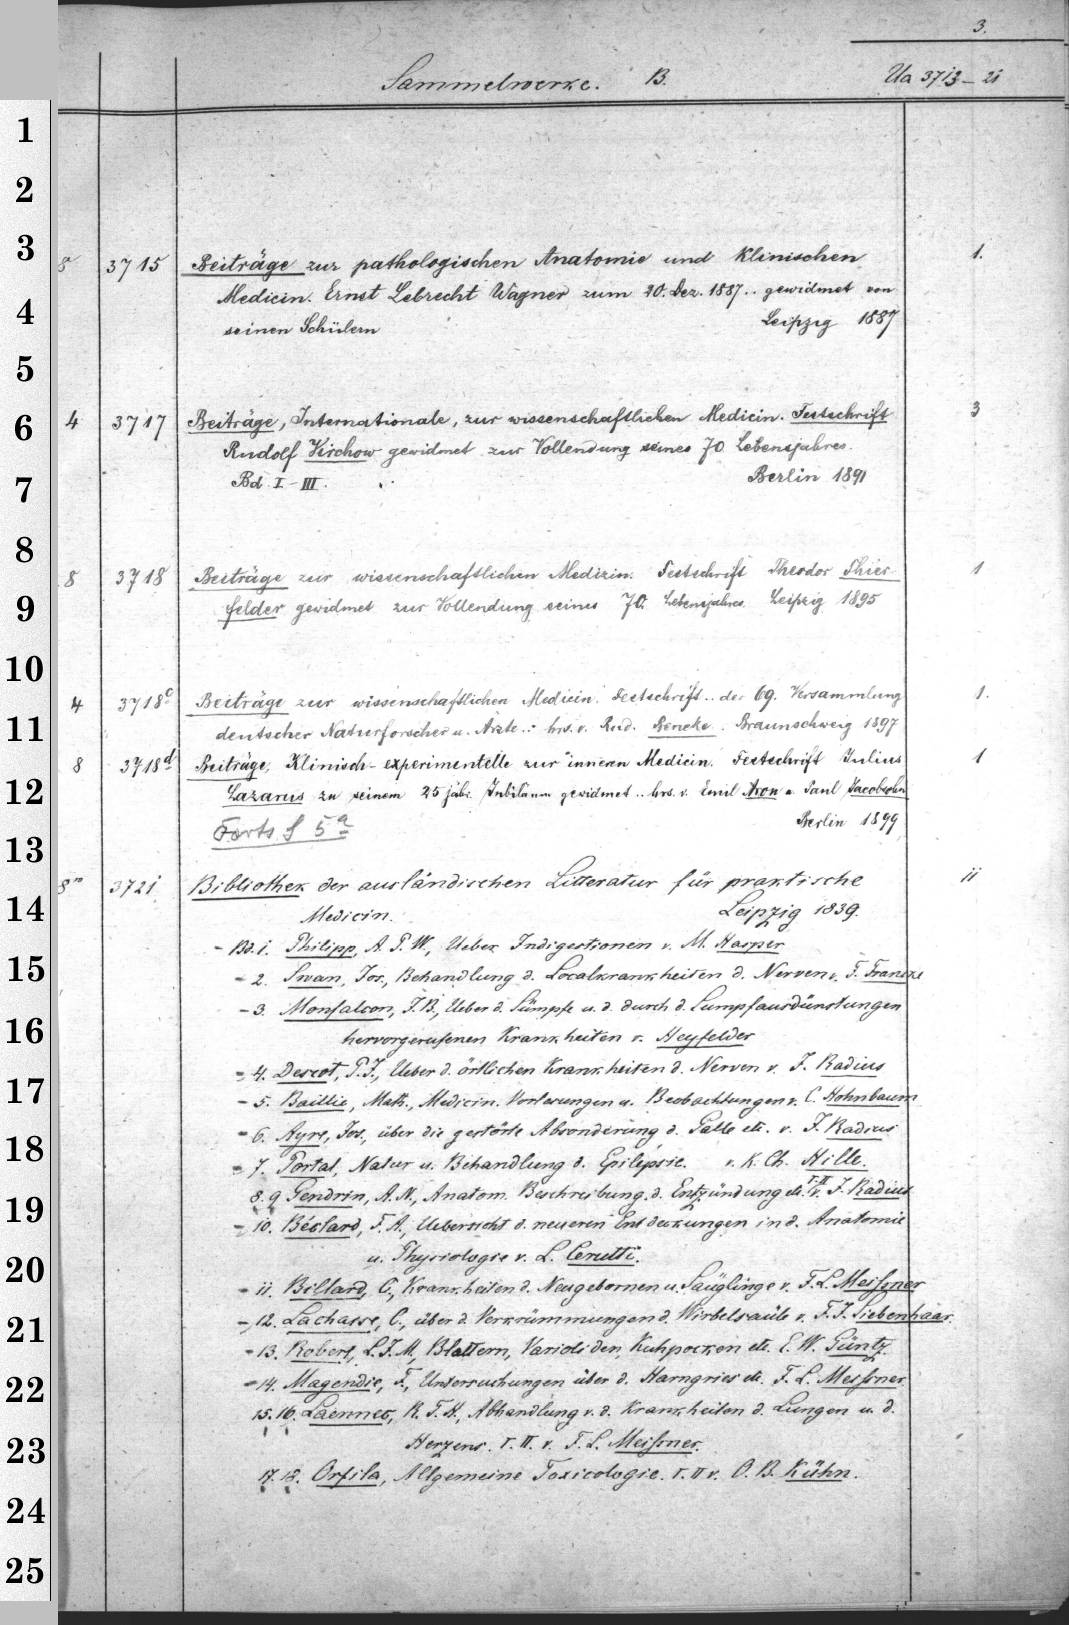 3.
Sammelwerke. B. Ua 3713-21
1
2
3
8 3715 Beiträge zur pathologischen Anatomie und Klinischen 1.
4 Medicin. Ernst Lebrecht Wagner zum 20. Dez. 1887.. gewidmet von
seinen Schülern Leipzig 1887
5
6 4 3717 Beiträge, Internationale, zur wissenschaftlichen Medicin. Festschrift 3
Rudolf Virchow gewidmet zur Vollendung seines 70. Lebensjahres.
7 Bd. I-III. Berlin 1891
8
8 3718 Beiträge zur wissenschaftlichen Medizin. Festschrift Theodor Thier- 1
9 felder gewidmet zur Vollendung seines 70. Lebensjahres. Leipzig 1895
10
4 3718c Beiträge zur wissenschaftlichen Medicin. Festschrift.. der 69. Versammlung 1.
11 deutscher Naturforscher u. Ärzte.. hrs. v. Rud. Beneke. Braunschweig 1897
8 3718d Beiträge, Klinisch-experimentelle zur inneren Medicin. Festschrift Julius 1
12 Lazarus zu seinem 25 jähr. Jubiläum gewidmet.. hrs. v. Emil Aron u. Paul Jacobsohn
Forts. S 5a Berlin 1899
13
8m 3721 Bibliothek der ausländischen Litteratur für praktische 11
14 Medicin. Leipzig 1839.
- Bd. 1. Philipp, A. P. W., Ueber Indigestionen v. M. Hasper
15 - 2. Swan, Jos., Behandlung d. Localkrankheiten d. Nerven v. F. Francke
- 3. Monfalcon, J. B., Ueber d. Sümpfe u. d. durch d. Sumpfausdünstungen
16 hervorgerufenen Krankheiten v. Heyfelder
- 4. Descot, P. J., Ueber d. örtlichen Krankheiten d. Nerven v. J. Radius
17 - 5. Baillie, Math., Medicin. Vorlesungen u. Beobachtungen v. C. Hohnbaum
- 6. Ayre, Jos., über die gestörte Absonderung d. Galle etc. v. J. Radius
18 - 7. Portal, Natur u. Behandlung d. Epilepsie. v. K. Ch. Hille.
8. 9 Gendrin, A. N., Anatom. Beschreibung d. Entzündung etc. I-II v. J. Radius
19 - 10. Béclard, P. A., Uebersicht d. neueren Entdeckungen in d. Anatomie
u. Physiologie v. L. Cerutti.
20 - 11. Billard, C., Krankheiten d. Neugebornen u. Säuglinge v. F. L. Meißner
21 - 12. Lachaise, C., über d. Verkrümmungen d. Wirbelsäule v. F. J. Siebenhaar.
- 13. Robert, L. J. M., Blattern, Varioliden, Kuhpocken etc. E. W. Güntz.
22 - 14. Magendie, F., Untersuchungen über d. Harngries etc. F. L. Meißner.
15. 16. Laennec, R. T. H., Abhandlung v. d. Krankheiten d. Lungen u. d.
23 Herzens. I. II. v. F. L. Meißner.
17. 18. Orfila, Allgemeine Toxicologie. I. II v. O. B. Kühn.
24
25